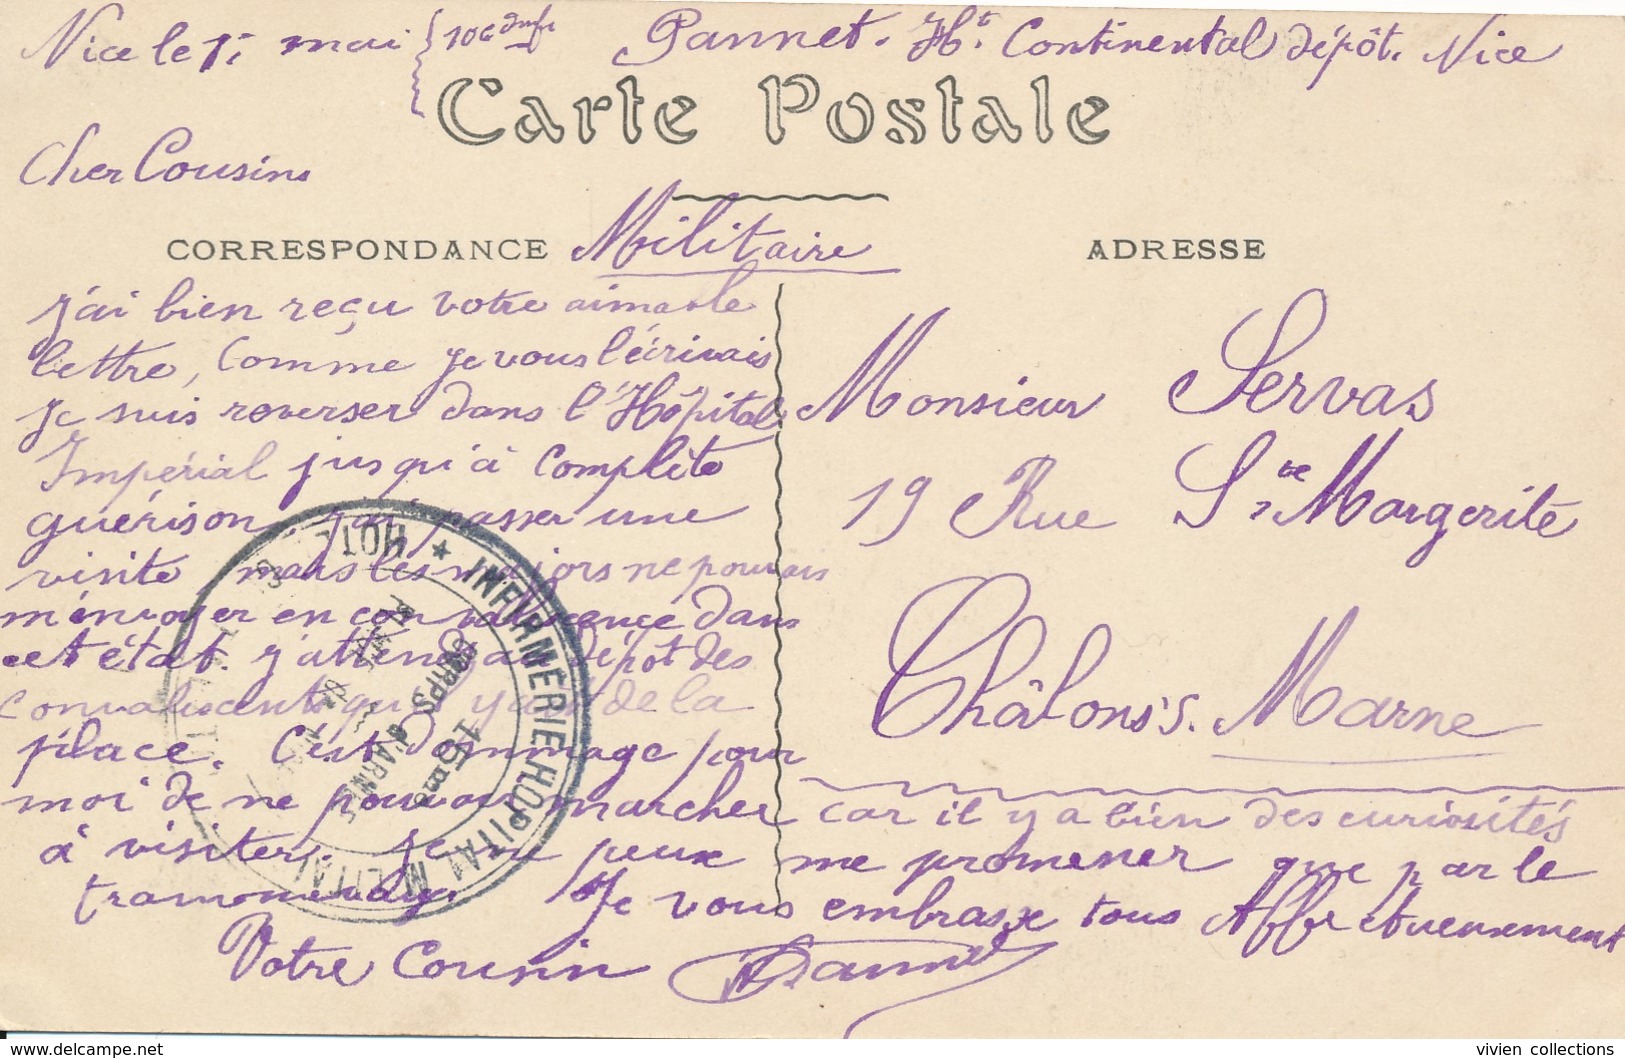 Nice le 1; mai 106 dinfe Pannet. Ht. Continental dépôt. Nice
Carte Postale
Cher Cousins
Militaire
CORRESPONDANCE ADRESSE
j'ai bien reçu votre aimable
lettre, Comme je vous l'écrivais
je suis reverser dans l'Hôpital
Impérial jusqu'à complète
guérison j'ai passer une
visite mais les majors ne pouvais
m'envoyer en convalescence dans
cet état. j'attend au dépôt des
convalescents qu'il y ait de la
place. C'est dommage pour
moi de ne pouvoir marcher car il y a bien des curiosités
à visiter. je ne peux me promener que par le
tramonway. Je vous embrasse tous Affectueusement
Votre Cousin Pannet
Monsieur Servas
19 Rue Ste Margerite
Châlons s. Marne
INFIRMERIE HOPITAL MILITAIRE
★ HOTEL
15me
CORPS d'ARMÉE
vivien collections
www.delcampe.net